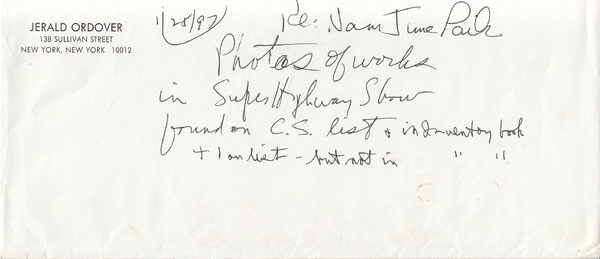 JERALD ORDOVER
138 SULLIVAN STREET
NEW YORK, NEW YORK 10012
1/28/97
Re: Nam June Paik
Photos of works
in SuperHighway Show
found on C.S. list & in Inventory book
+ 1 on list - but not in " "